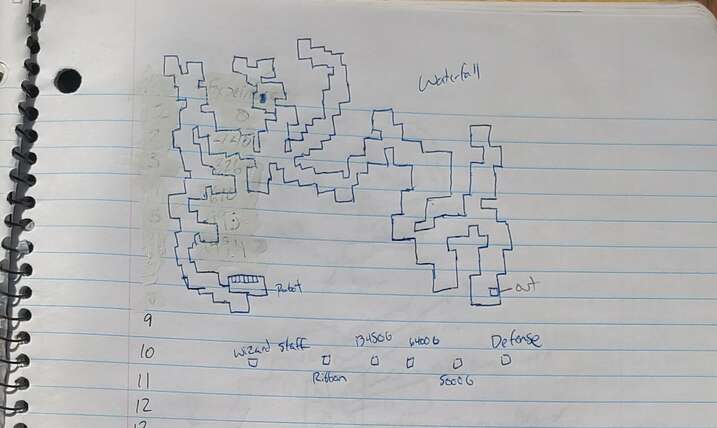 Waterfall
Robot
out
9
Wizard staff 13450G 6400G Defense
10
Ribbon 5000G
11
12